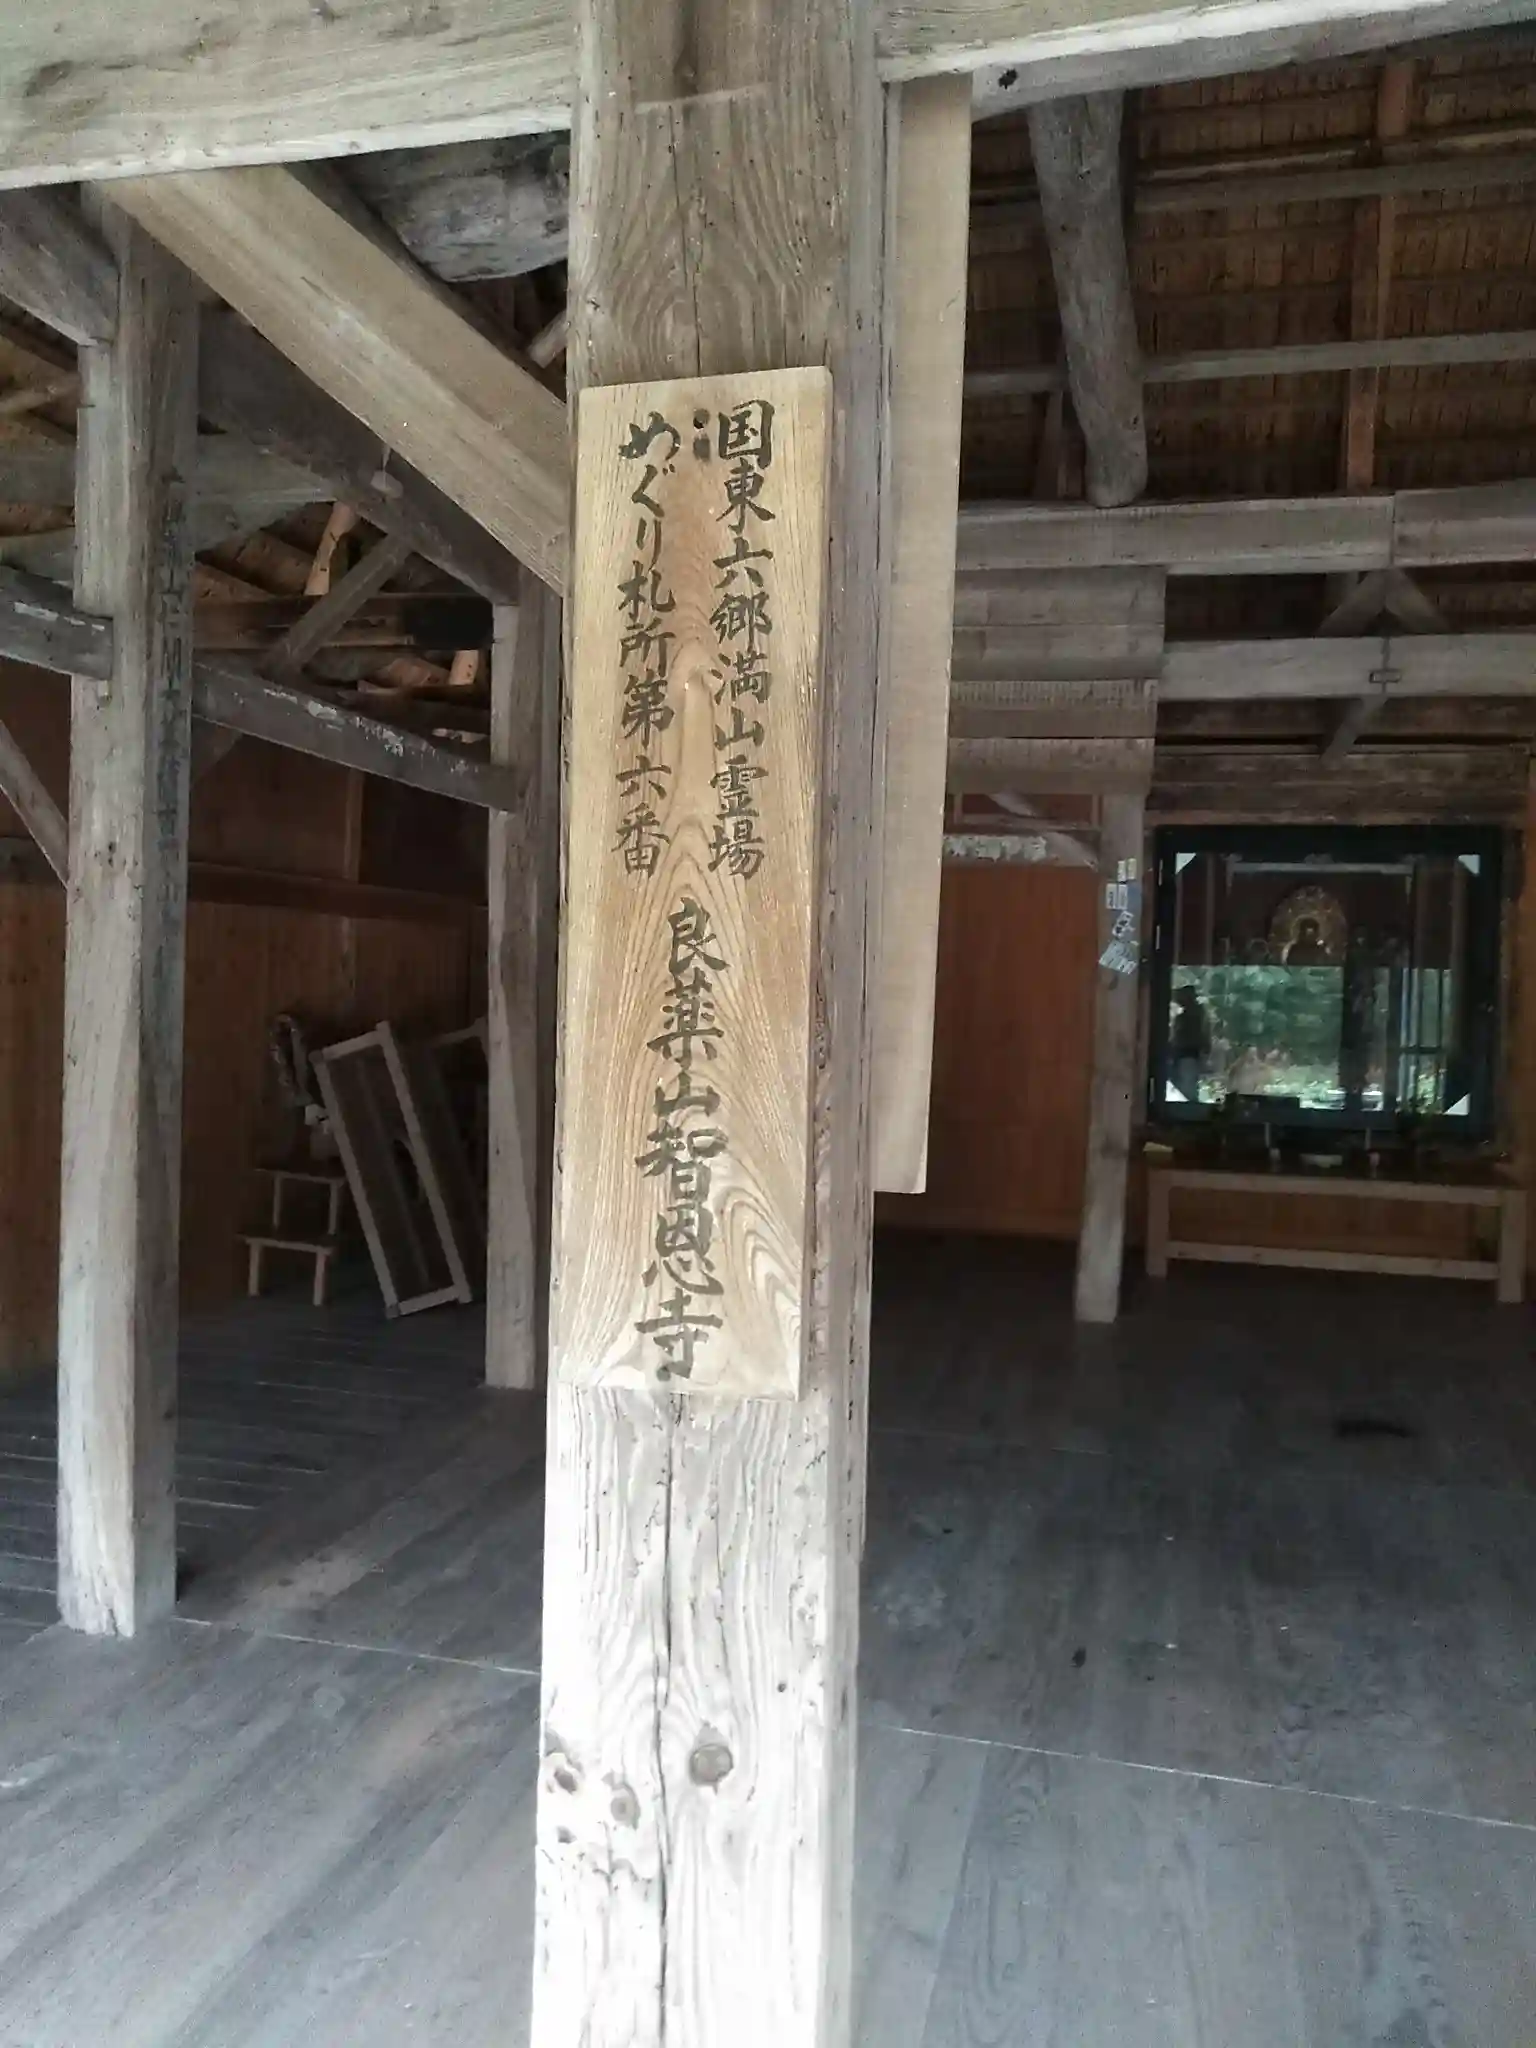 国東六郷満山霊場
めぐり札所第六番
良薬山智恩寺